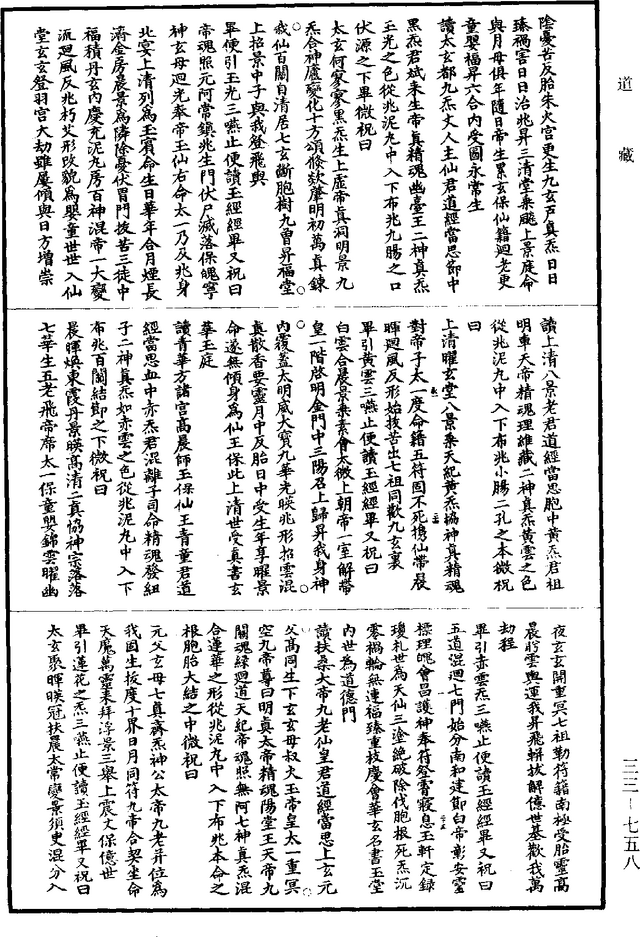 道藏
陰憂苦反胎朱火宮更生九玄戶真炁日日
臻禍害日日治兆昇三清堂乘飇上景庭命
與月母俱年隨日帝生累玄保仙籍迴老更
童嬰福昇六合內受圖永常生
讀太玄都九炁丈人主仙君道經當思節中
黑炁君斌來生帝真精魂幽臺王二神真炁
玉光之色從兆泥丸中入下布兆九腸之口
伏源之下畢微祝曰
太玄何寥寥黑炁生上虛帝真祠明景九
炁合神廬變化十方頌條欻肇明初萬真鍊
我仙百關自清居七玄斷胞樹九曾昇福堂
上招景中子與我登飛輿
畢便引玉光三嚥止便讀玉經經畢又祝曰
帝魂照元阿常鎮兆生門伏尸滅落保魄寧
神玄母迴光奉帝王仙右命太一乃反兆身
北宴上清列為玉賓命生日華年合月煙長
濟金房晨景為隣除憂伏胃門拔苦三徒中
福積丹玄內慶充泥丸房百神混帝一大變
流迴風反兆朽艾形改貌為嬰童世世入仙
堂玄玄登羽宮大劫雖屢傾與日方增崇
讀上清八景老君道經當思胞中黃炁君祖
明車天帝精魂理維藏二神真炁黃雲之色
從兆泥丸中入下布兆小腸二孔之本微祝
曰
上清曜玄堂八景乘天紀黃炁協神真精魂
對帝子太一度命籍五符固不死攜仙帶晨
暉迴風反形始拔苦出七祖同歡九玄裏
畢引黃雲三嚥止便讀玉經經畢又祝曰
白雲合晨景乘素會太微上朝帝一室解帶
皇一階啟明金門中三陽召上歸昇我身神
內覆蓋太明威大寶九華光映兆形招雲混
真歡香要靈月中反胎日中受生年享曜景
命遂無傾身為仙王保此上清世受真書玄
華玉庭
讀青華方諸宮高晨師玉保仙王青童君道
經當思血中赤炁君混離子司命精魂發紐
子二神真炁如赤雲之色從兆泥丸中入下
布兆百關結節之下微祝曰
晨暉煥東霞丹景映高清二真協神宗落落
七華生五老飛帝席太一保童嬰錦雲曜幽
夜玄玄開重冥七祖勒符籍南極受胎靈高
晨盻雲輿運我昇飛輧拔解億世基歡我萬
劫程
畢引赤雲炁三嚥止便讀玉經經畢又祝曰
五道混迴七門始分南和建節白帝彰安靈
標理魄會昌護神奉符登霄寢息玉軒定錄
瓊札世為天仙三塗絕破除伐胞根死炁沉
零禍輪無連福臻重枝慶會華玄名書玉堂
內世為道德門
讀扶桑大帝九老仙皇君道經當思上玄元
父高同生下玄玄母叔火王帝皇太一重冥
空九帝尊曰明真太帝精魂陽堂王天帝九
關魂綠迴道天紀帝魂照無阿七神真炁混
合蓮華之形從兆泥丸中入下布兆本命之
根胞胎大結之中微祝曰
元父玄母七真齊炁神公太帝九老并位為
我固生拔度十界日月同符九帝合契生命
天魔萬靈來拜浮景三舉上震文保億世
畢引蓮花之炁三嚥止便讀玉經經畢又祝曰
太玄聚暉暎冠扶晨太常變景須臾混分入
三三—七五八